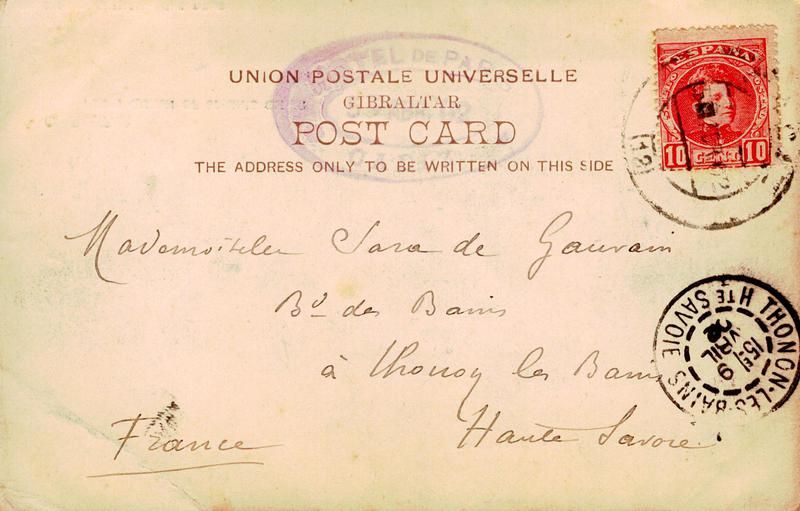 HOTEL DE PARIS
UNION POSTALE UNIVERSELLE
GIBRALTAR
POST CARD
THE ADDRESS ONLY TO BE WRITTEN ON THIS SIDE
ESPAÑA
10 CENT. 10
Mademoiselle Sara de Gauvain
Bd des Bains
à Thonon les Bains
Haute Savoie
France
THONON-LES-BAINS
HTE SAVOIE
15E
9
AVRIL
02